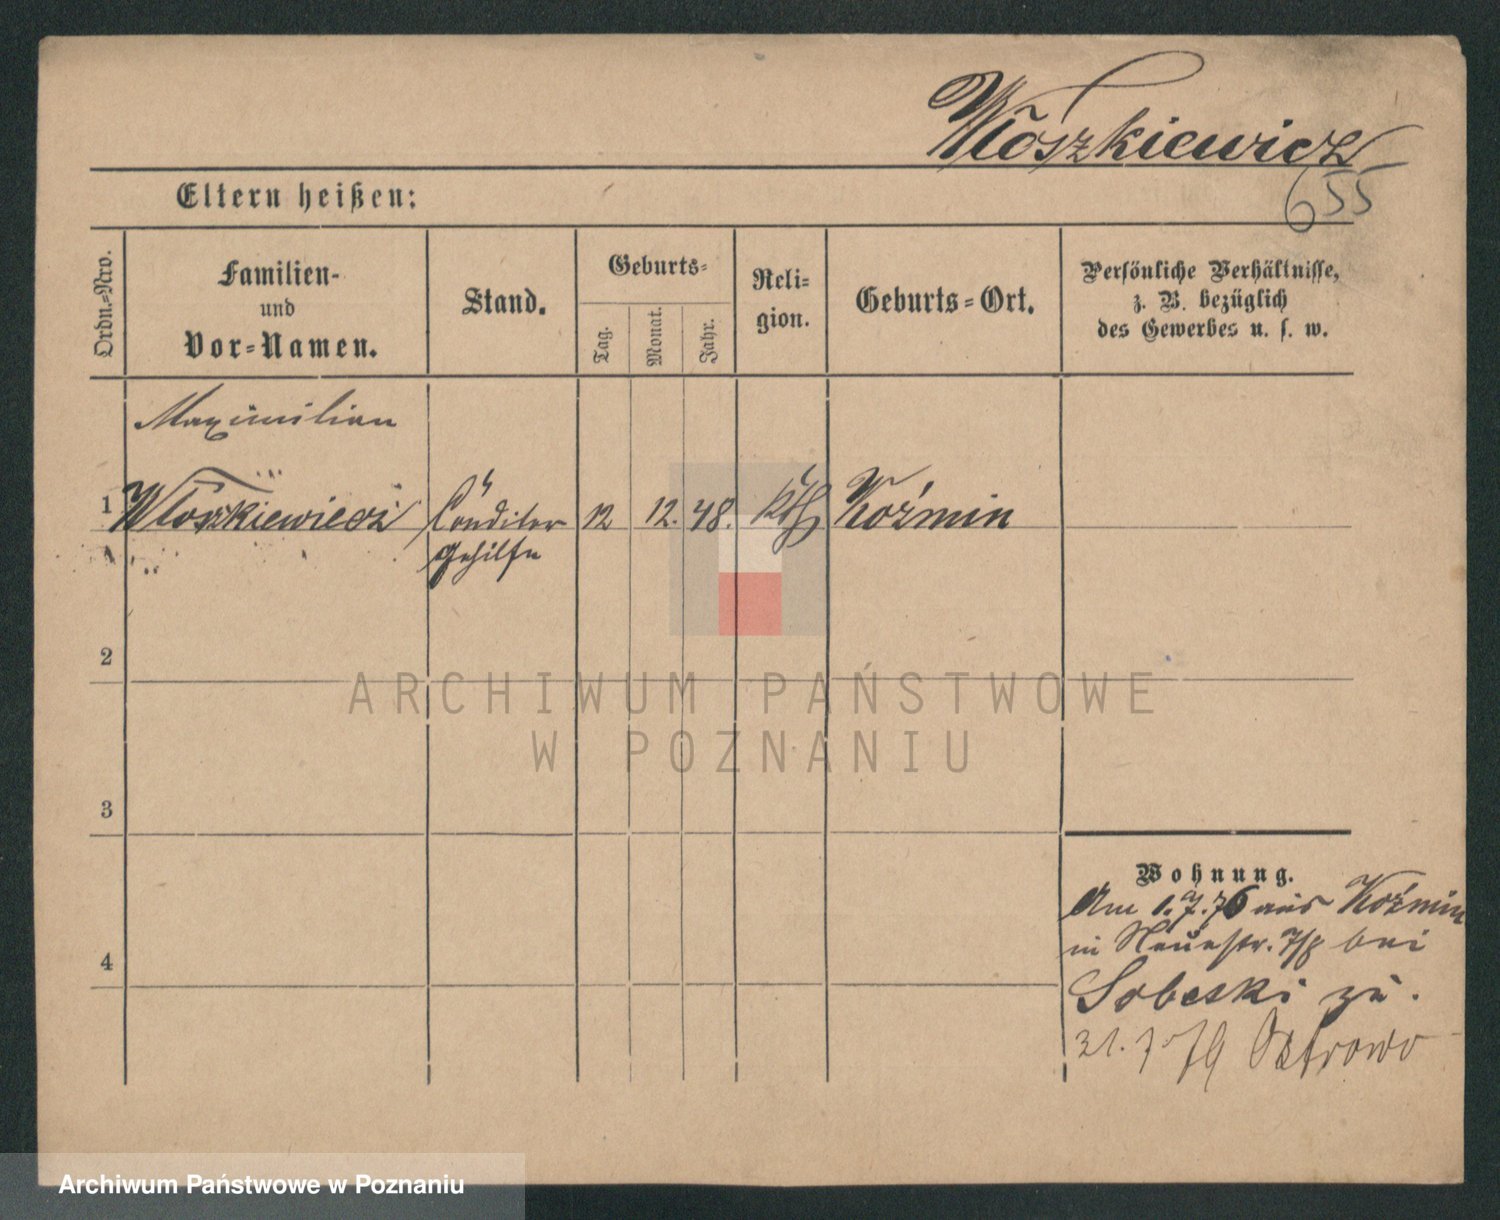 Włoszkiewicz
655
Eltern heißen:
Ordn.-Nro.
Familien-
und
Vor-Namen.
Stand.
Geburts-
Tag.
Monat.
Jahr.
Reli-
gion.
Geburts-Ort.
Persönliche Verhältnisse,
z. B. bezüglich
des Gewerbes u. s. w.
Maximilian
1 Włoszkiewicz Conditor 12 12. 48. kth Koźmin
Gehilfe
2
ARCHIWUM PAŃSTWOWE
W POZNANIU
3
Wohnung.
Am 1. 7. 76 aus Koźmin
in Neuestr. 7/8 bei
4
Sobeski zu.
31. 7 79 Ostrowo
Archiwum Państwowe w Poznaniu